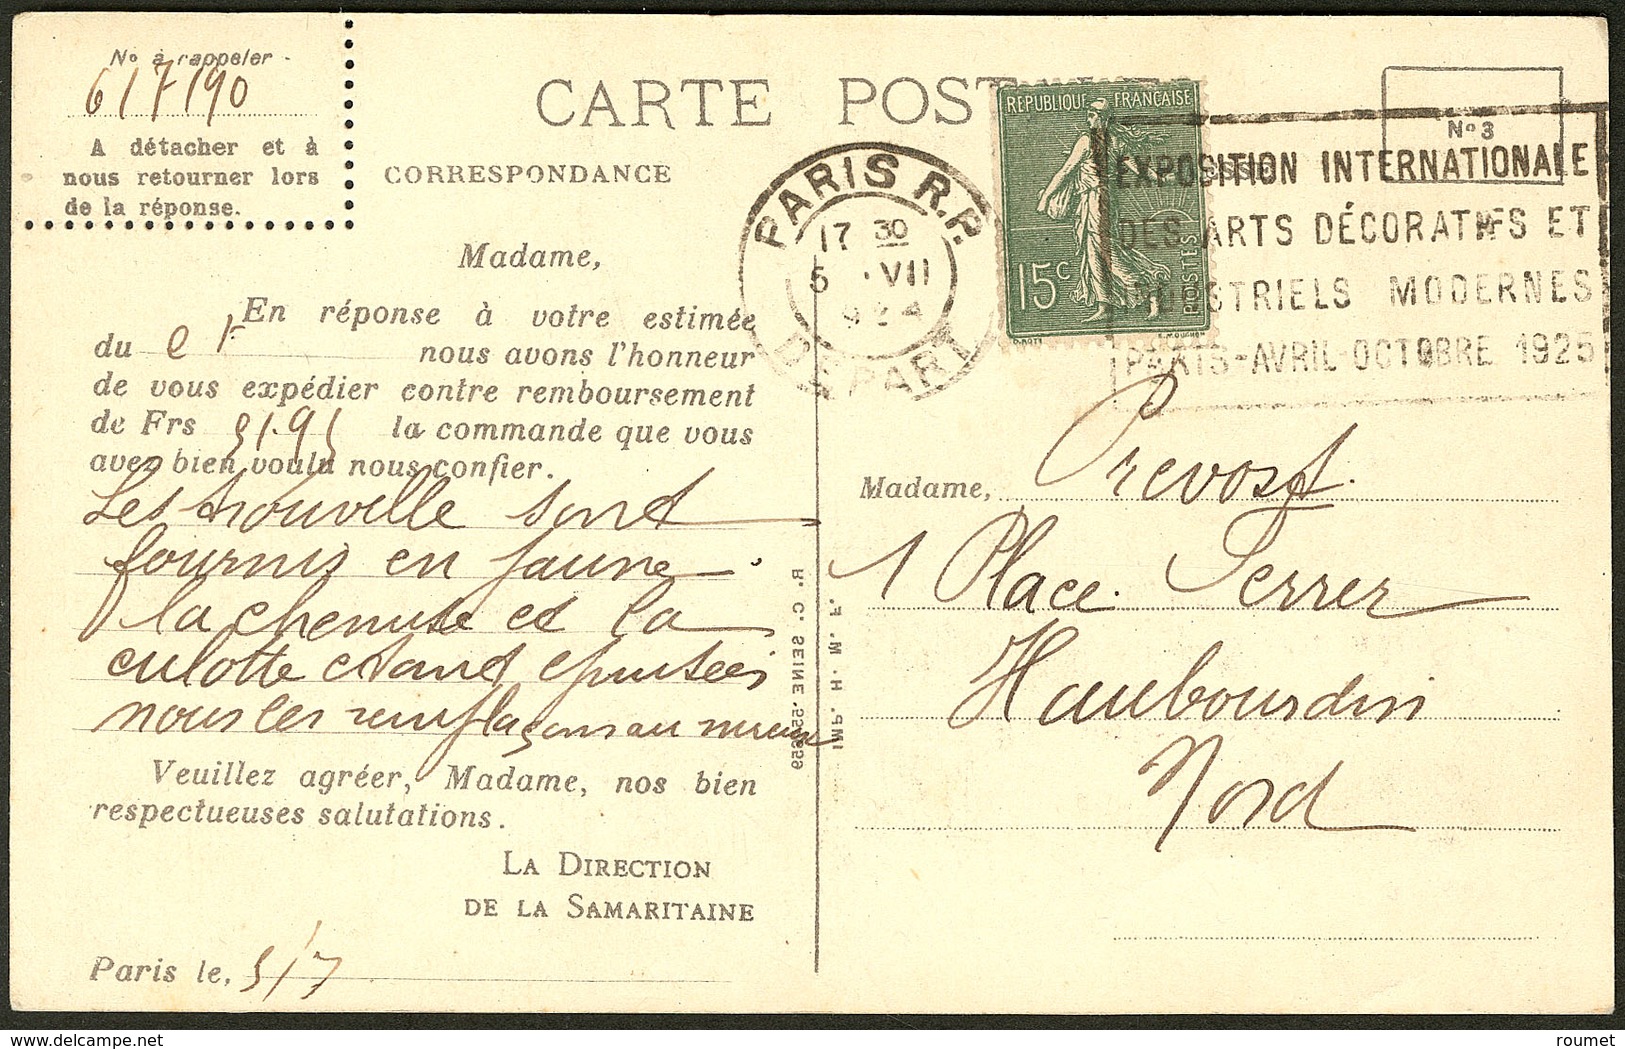 No à rappeler
617190
A détacher et à
nous retourner lors
de la réponse.
CARTE POST
CORRESPONDANCE
PARIS R.P.
17 30
5 VII
924
DEPART
REPUBLIQUE FRANÇAISE
15c
POSTES
No 3
EXPOSITION INTERNATIONALE
DES ARTS DÉCORATIFS ET
INDUSTRIELS MODERNES
PARIS-AVRIL-OCTOBRE 1925
Madame,
En réponse à votre estimée
du nous avons l'honneur
de vous expédier contre remboursement
de Frs 51.95 la commande que vous
avez bien voulu nous confier.
Les trouvelle sont
fournis en jaune
la chemise et la
culotte etant epuisées
nous les remplaçons au mieux
Veuillez agréer, Madame, nos bien
respectueuses salutations.
LA DIRECTION
DE LA SAMARITAINE
Paris le, 5/7
R. C. SEINE. 59.899
IMP. H. M. F.
Madame, Prevost.
1 Place Ferrer
Haubourdin
Nord
roumet